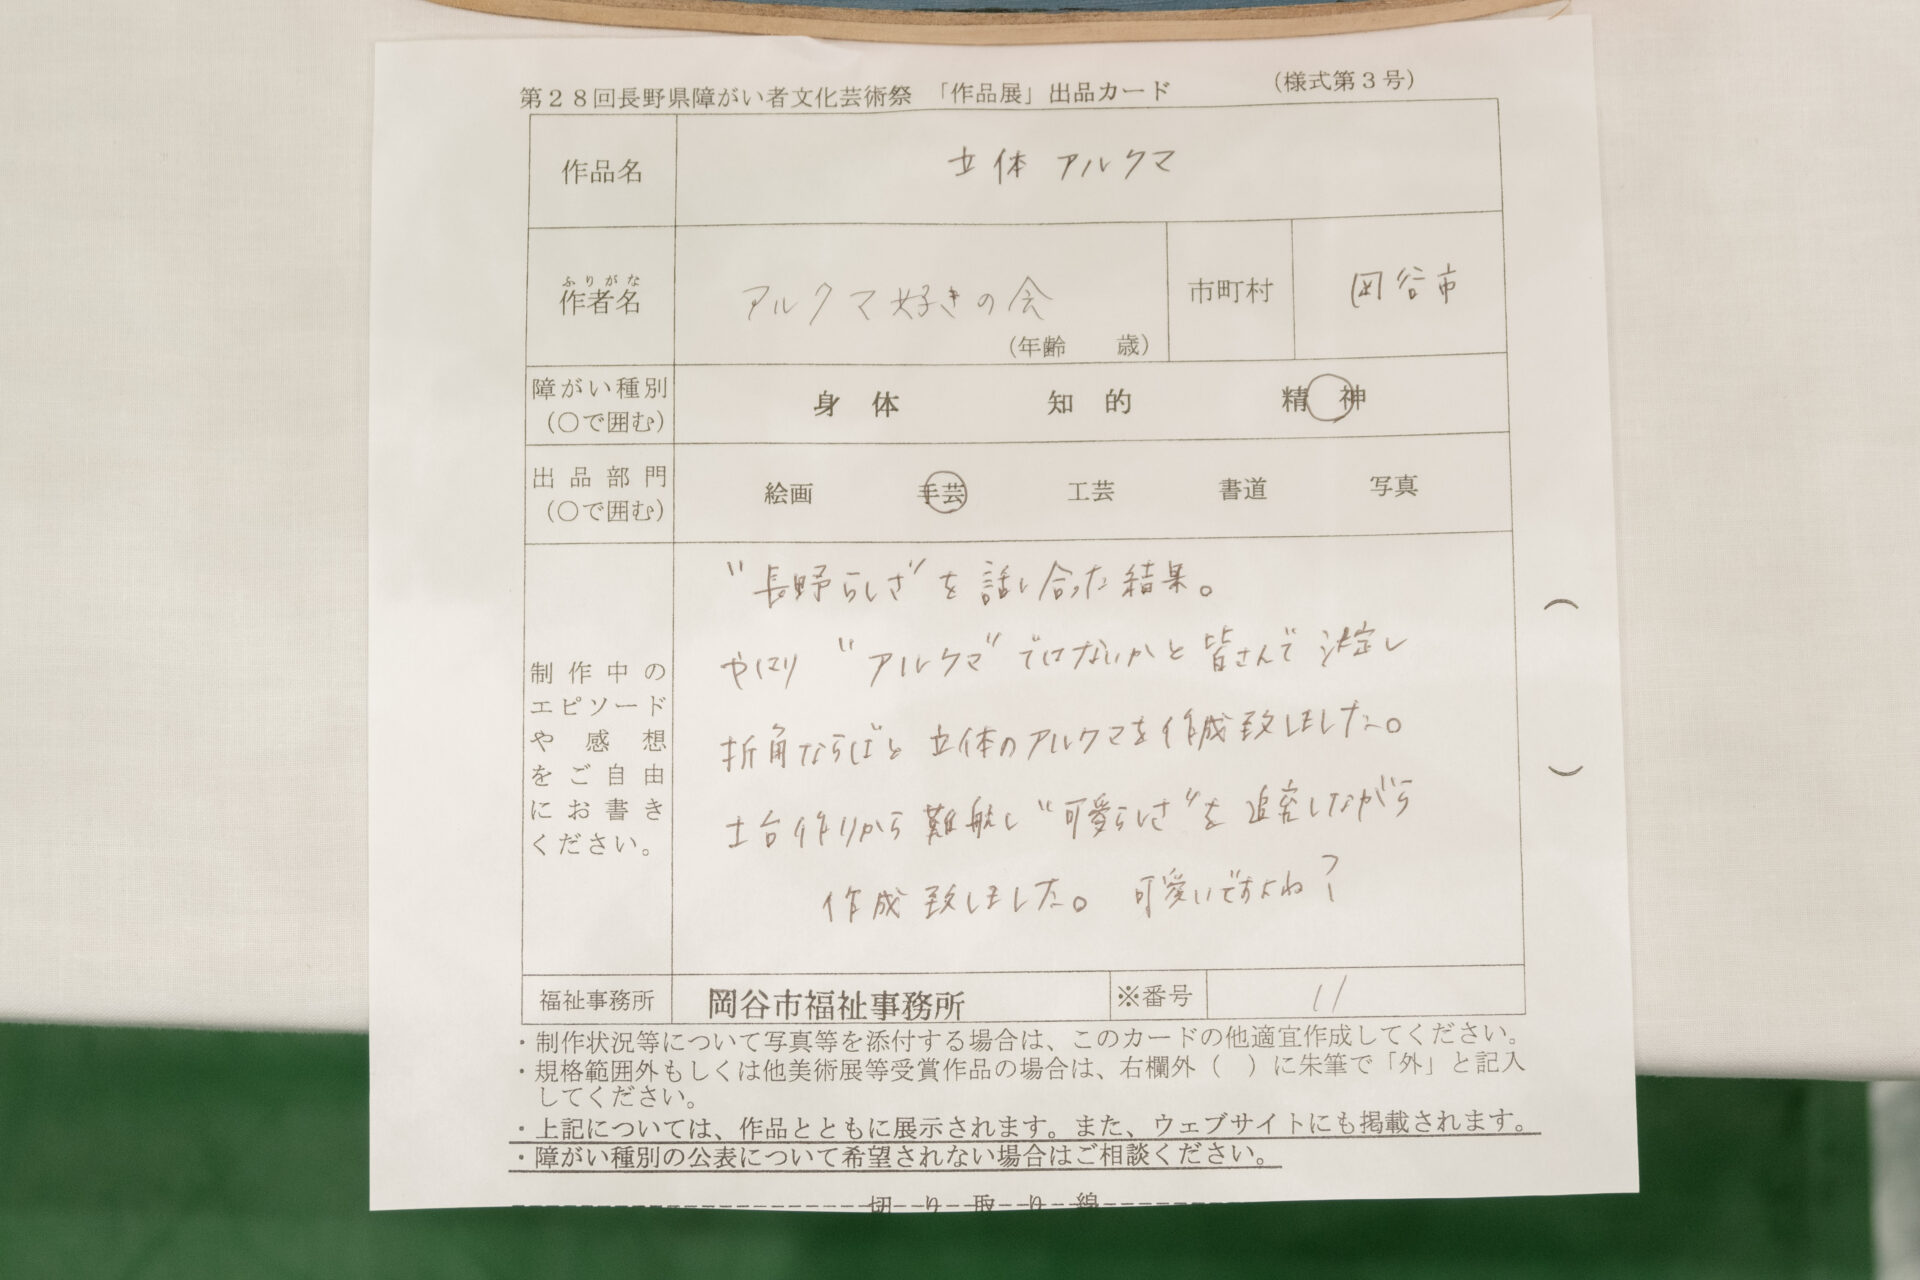 第28回長野県障がい者文化芸術祭 「作品展」出品カード (様式第3号)
作品名 立体 アルクマ
ふりがな
作者名 アルクマ好きの会
(年齢 歳)
市町村 岡谷市
障がい種別
(○で囲む)
身体 知的 精神
出品部門
(○で囲む)
絵画 手芸 工芸 書道 写真
制作中の
エピソード
や感想
をご自由
にお書き
ください。
"長野らしさ"を話し合った結果。
やはり "アルクマ"ではないかと皆さんで決定し
折角ならばと立体のアルクマを作成致しました。
土台作りから難航し"可愛らしさ"を追究しながら
作成致しました。 可愛いですよね?
(
)
福祉事務所 岡谷市福祉事務所 ※番号 11
・制作状況等について写真等を添付する場合は、このカードの他適宜作成してください。
・規格範囲外もしくは他美術展等受賞作品の場合は、右欄外( )に朱筆で「外」と記入
してください。
・上記については、作品とともに展示されます。また、ウェブサイトにも掲載されます。
・障がい種別の公表について希望されない場合はご相談ください。
切り取り線